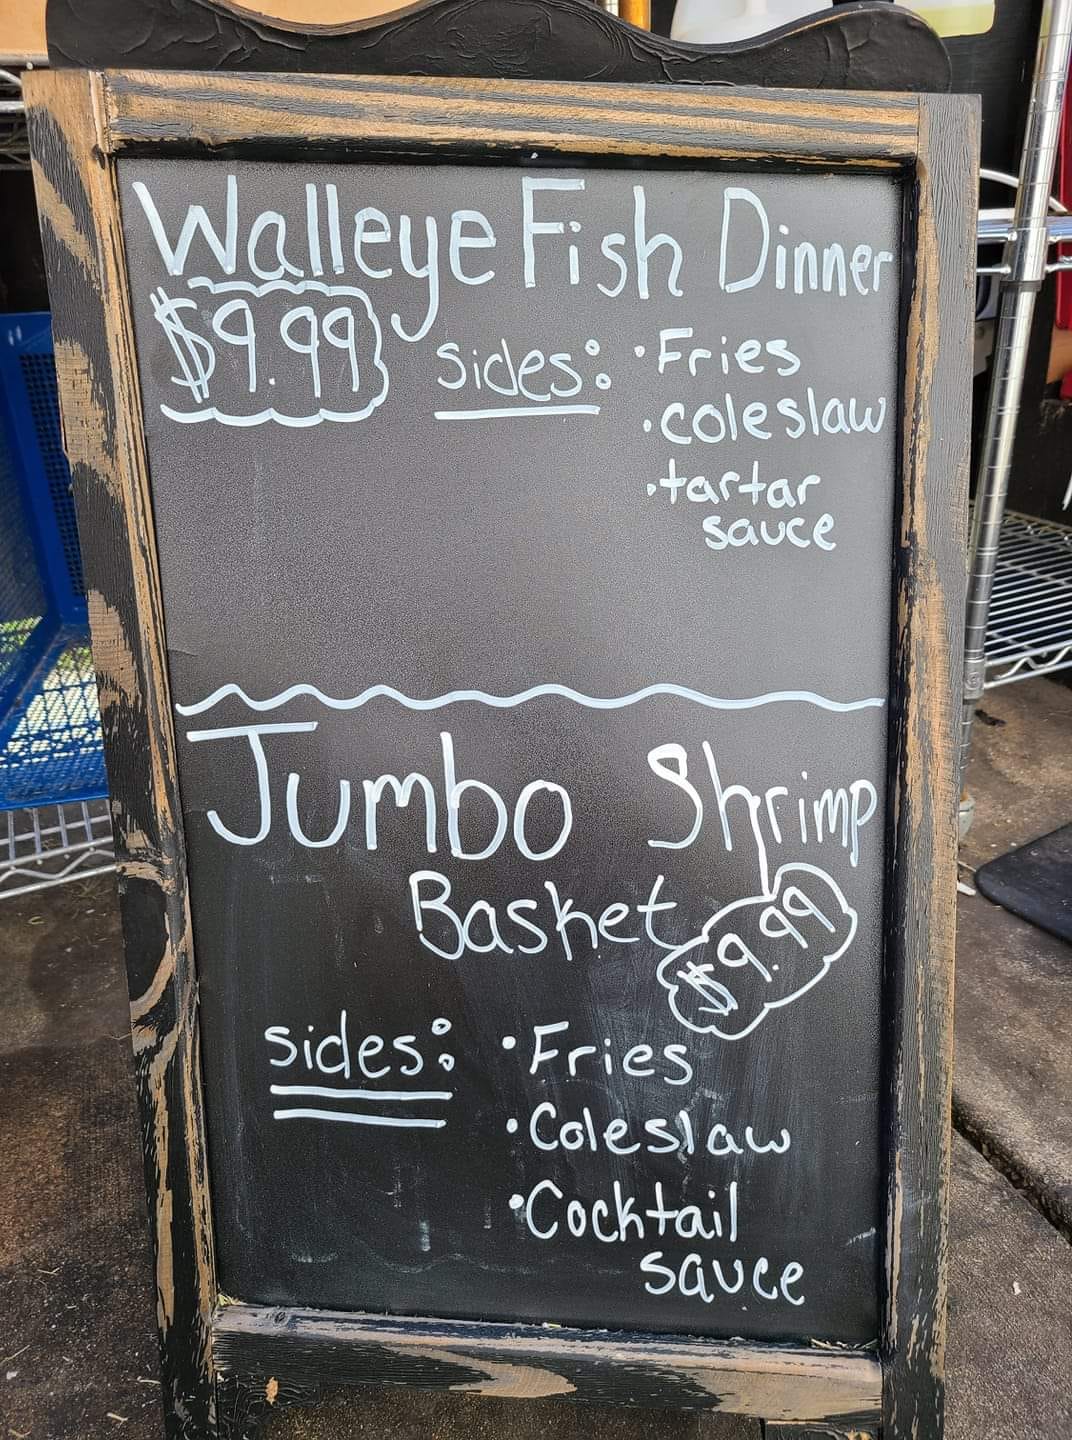 Walleye Fish Dinner
$9.99 sides: · Fries
· coleslaw
· tartar
sauce
Jumbo Shrimp
Basket $9.99
sides: · Fries
· Coleslaw
· Cocktail
sauce